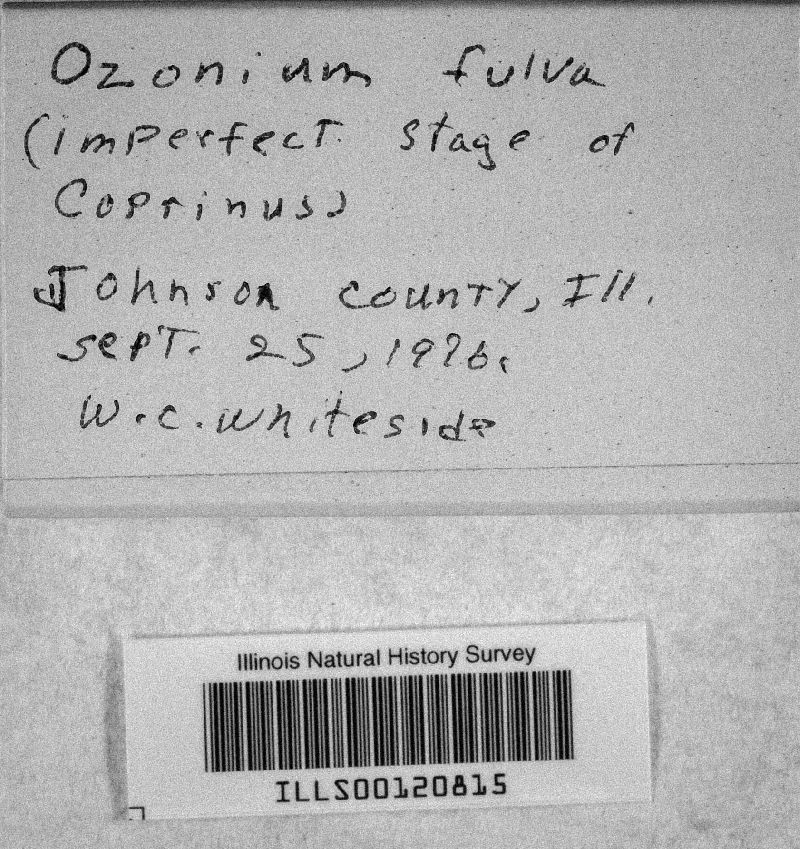 Ozonium fulva
(imperfect stage of
Coprinus)
Johnson county, Ill.
sept. 25, 1976.
W.C. Whiteside
Illinois Natural History Survey
ILLS00120815